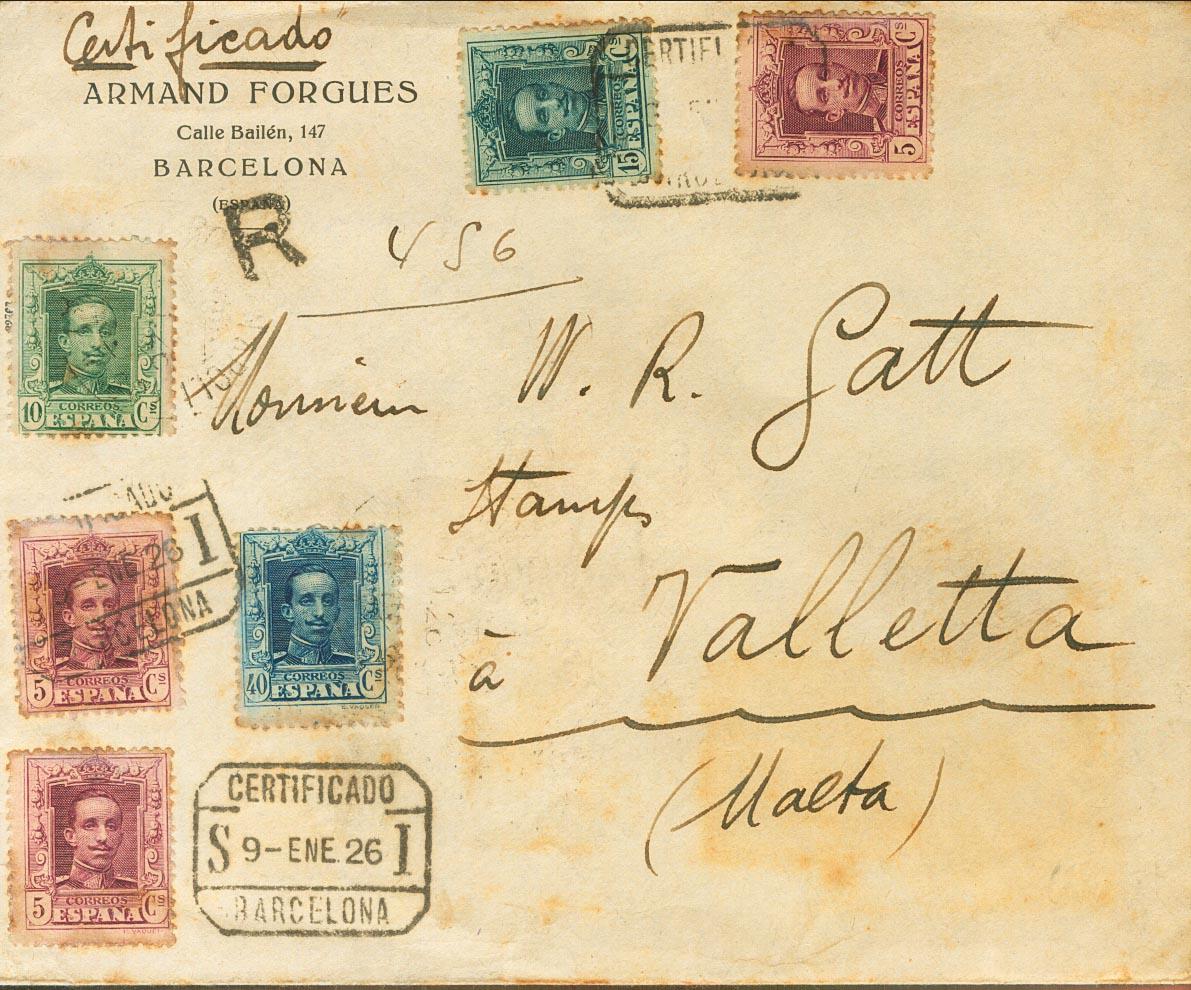 Certificado
ARMAND FORGUES
Calle Bailén, 147
BARCELONA
(ESPAÑA)
R
456
15 CORREOS ESPAÑA Cs
CERTIFI
5 CORREOS ESPAÑA Cs
10 CORREOS ESPAÑA Cs
Monsieur W. R. Gatt
Stamps
à Valletta
(Malta)
ENE 26 I
CELONA
5 CORREOS ESPAÑA Cs
40 CORREOS ESPAÑA Cs
E. VAQUER
5 CORREOS ESPAÑA Cs
E. VAQUER
CERTIFICADO
S 9-ENE.26 I
BARCELONA